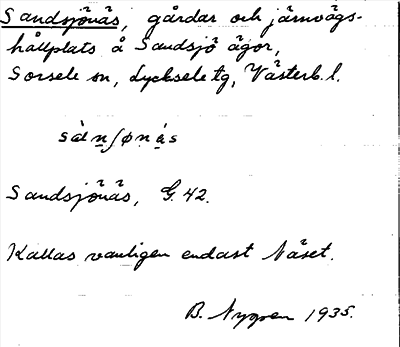 Sandsjönäs, gårdar och järnvägs-
hållplats å Sandsjö ägor,
Sorsele sn, Lycksele tg, Västerb. l.
sànʃønás
Sandsjönäs, G. 42.
Kallas vanligen endast Näset.
B. Nygren 1935.